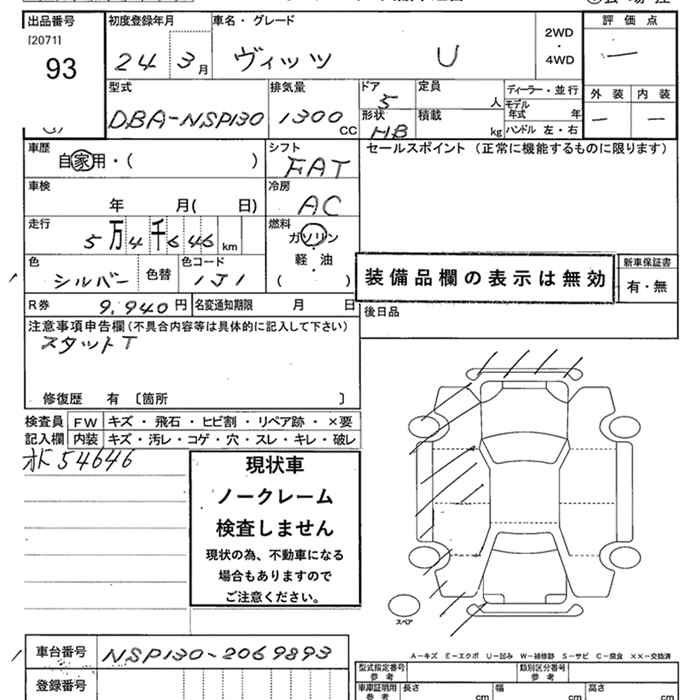 出品番号 初度登録年月 車名・グレード 評価点
[2071] 93
24 3月 ヴィッツ U 2WD・4WD —
型式 排気量 ドア 定員 ディーラー・並行 外装 内装
DBA-NSP130 1300CC 5 人 モデル年式 年 — —
形状 積載
HB kg ハンドル 左・右
車歴 シフト セールスポイント (正常に機能するものに限ります)
自家用・( ) FAT
車検 冷房
年 月( 日) AC
走行 燃料
5万4千646km ガソリン
軽・油
( )
色 色替 色コード 装備品欄の表示は無効 新車保証書
シルバー 1J1 有・無
R券 9,940円 名変通知期限 月 日 後日品
注意事項申告欄(不具合内容等は具体的に記入して下さい)
スタットT
修復歴 有 〔箇所 〕
検査員 FW キズ・飛石・ヒビ割・リペア跡・×要
記入欄 内装 キズ・汚レ・コゲ・穴・スレ・キレ・破レ
オK54646
現状車
ノークレーム
検査しません
現状の為、不動車になる
場合もありますので
ご注意ください。
スペア
A-キズ E-エクボ U-凹み W-補修跡 S-サビ C-腐食 ××-交換済
車台番号 NSP130-2069893
登録番号
型式指定番号 類別区分番号
車庫証明用 長さ cm 幅 cm 高さ cm